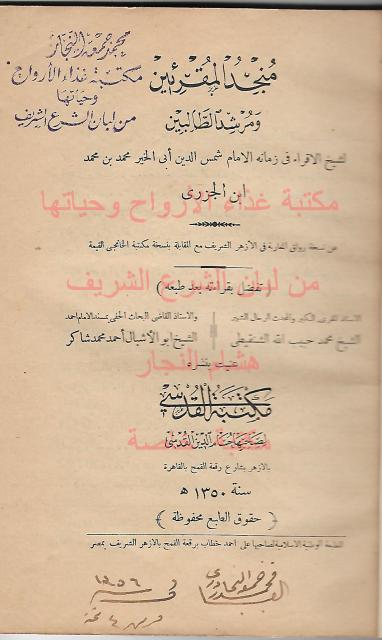 محمد جمعه النجار
مكتبة غذاء الأرواح
وحياتها
من لبان الشرع الشريف
منجد المقرئين
ومرشد الطالبين
لشيخ الاقراء فى زمانه الامام شمس الدين أبى الخير محمد بن محمد
ابن الجزرى
مكتبة غذاء الأرواح وحياتها
عن نسخة رواق المغاربة فى الأزهر الشريف مع المقابلة بنسخة مكتبة الخانجى القيمة
من لبان الشرع الشريف
( تفضل بقراءته بعد طبعه )
الاستاذ المقرىء الكبير والمحدث الرحال الشهير
الشيخ محمد حبيب الله الشنقيطى
والاستاذ القاضى البحاث الحفى بمسند الامام احمد
الشيخ ابو الاشبال أحمد محمد شاكر
عنيت بنشره
هشام النجار
مكتبة القدسي
لصاحبها حسام الدين القدسي
بالازهر بشارع رقعة القمح بالقاهرة
سنة ١٣٥٠ ه
( حقوق الطبع محفوظة )
المطبعة الوطنية الاسلامية لصاحبها على احمد خطاب برقعة القمح بالازهر الشريف بمصر
فى
١٣٥٦
قرش ٤